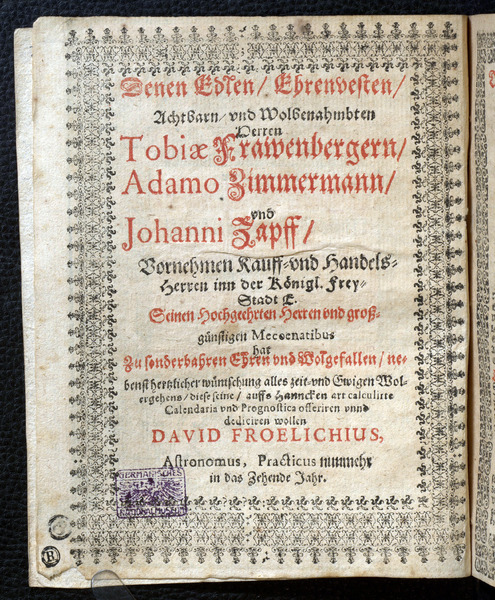 Denen Edlen/ Ehrenvesten/
Achtbarn/ vnd Wolbenahmbten
Herren
Tobiæ Frawenbergern/
Adamo Zimmermann/
vnd
Johanni Zapff/
Vornehmen Kauff- vnd Handels-
Herren inn der Königl. Frey-
Stadt E.
Seinen Hochgeehrten Herren vnd groß-
günstigen Mecoenatibus
hat
Zu sonderbahren Ehren vnd Wolgefallen/ ne-
benst hertzlicher wünschung alles zeit- vnd Ewigen Wol-
ergehens/ diese seine/ auffs Hanncken art calculirte
Calendaria vnd Prognostica offeriren vnnd
dediciren wollen
DAVID FROELICHIUS,
Astronomus, Practicus nunmehr
in das Zehende Jahr.
GERMANISCHES